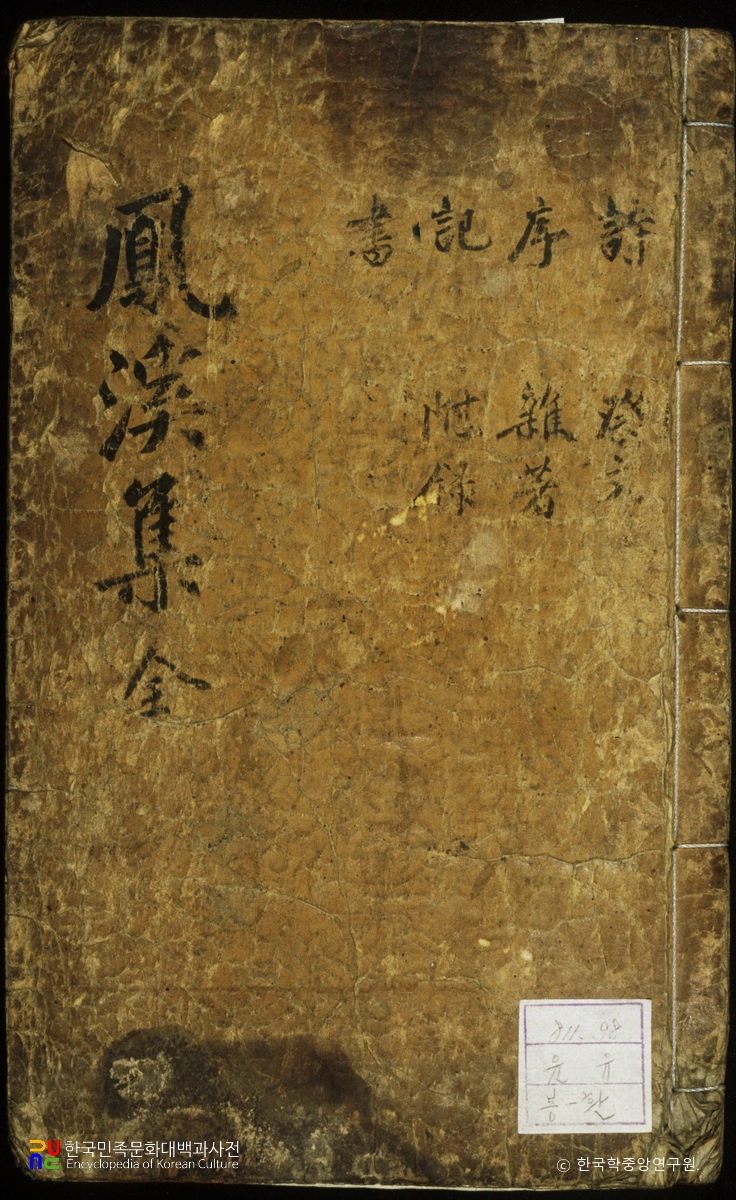 詩 序 記 書
祭文 雜著 附錄
鳳溪集 全
811.98
윤 유
봉-환
한국민족문화대백과사전
Encyclopedia of Korean Culture
© 한국학중앙연구원